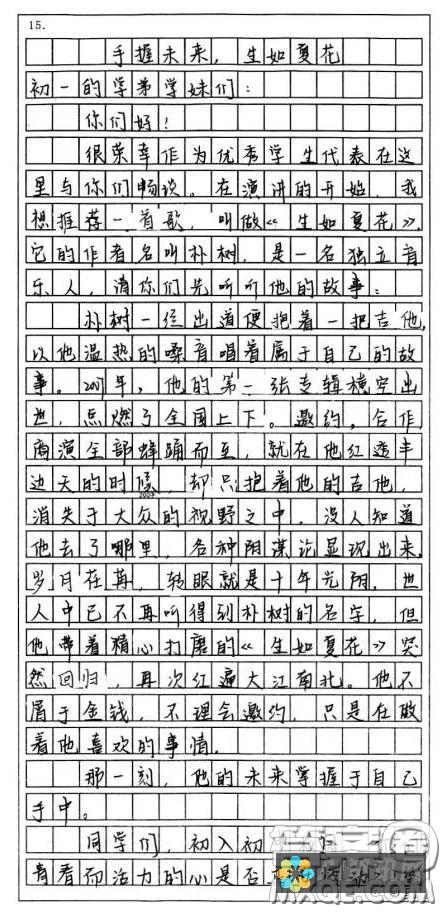 15.
手握未来，生如夏花
初一的学弟学妹们：
你们好！
很荣幸作为优秀学生代表在这
里与你们畅谈。在演讲的开始，我
想推荐一首歌，叫做《生如夏花》，
它的作者名叫朴树，是一名独立音
乐人，请你们先听听他的故事：
朴树一经出道便抱着一把吉他，
以他温热的嗓音唱着属于自己的故
事。2001年，他的第一张专辑横空出
世，点燃了全国上下。邀约，合作，
商演全部蜂踊而至，就在他红透半
边天的时候，却只抱着他的吉他，
消失于大众的视野之中，没人知道
他去了哪里，各种阴谋论显现出来。
岁月荏苒，转眼就是十年光阴，世
人中已不再听得到朴树的名字，但
他带着精心打磨的《生如夏花》突
然回归，再次红遍大江南北。他不
屑于金钱，不理会邀约，只是在做
着他喜欢的事情。
那一刻，他的未来掌握于自己
手中。
同学们，初入初一
青春而活力的心是否